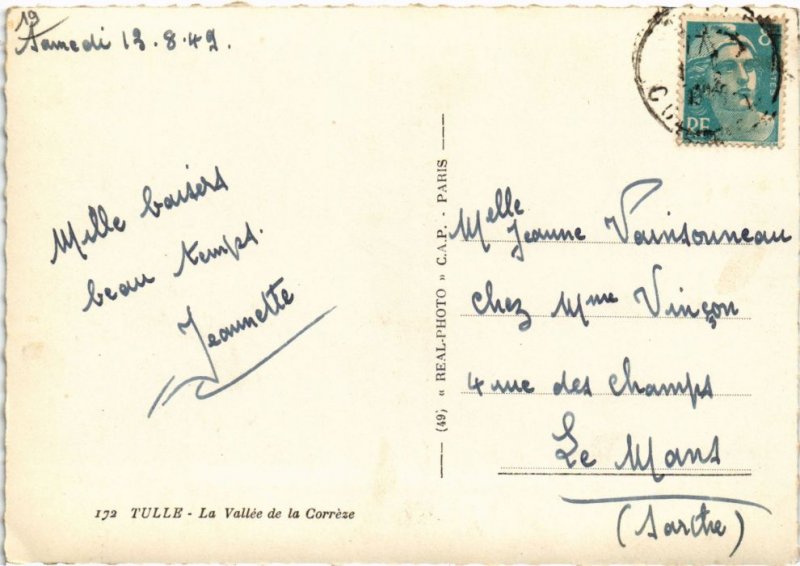 19
Samedi 13.8.49.
Mille baisers
beau temps.
Jeannette
172 TULLE - La Vallée de la Corrèze
(49) « REAL-PHOTO » C.A.P. - PARIS
8
RF
Melle Jeanne Vainsouneau
chez Mme Vinçon
4 rue des champs
Le Mans
(Sarthe)